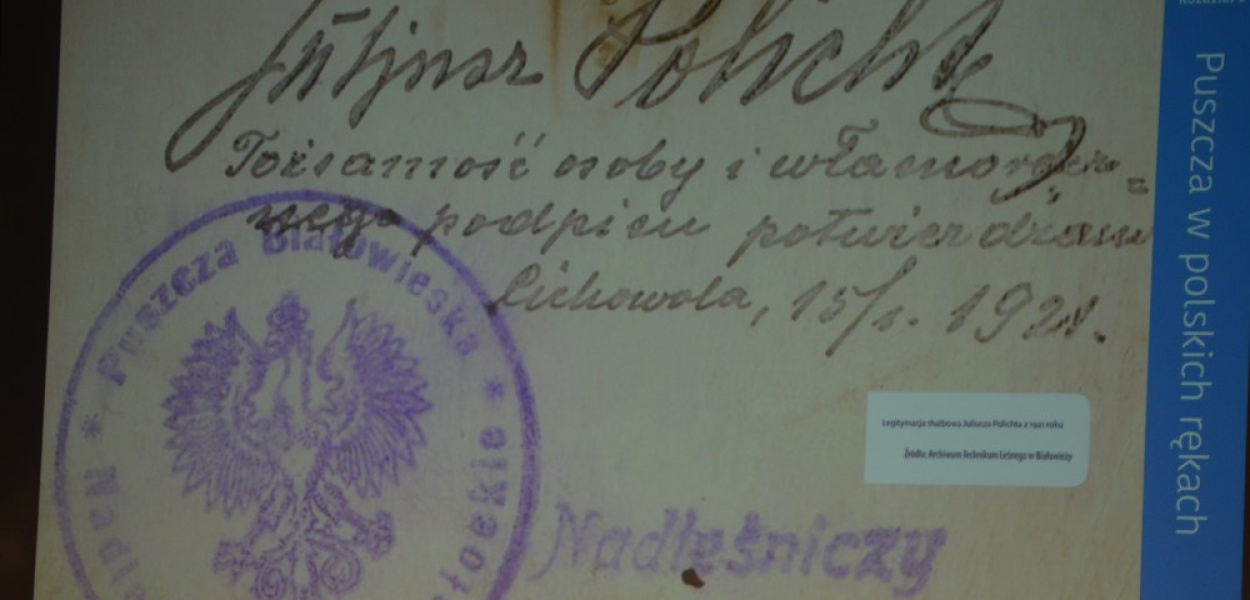 Juljusz Policht
Tożsamość osoby i własnoręcz=
nego podpisu potwierdzam
Cichowola, 15/I. 1921.
* Puszcza Białowieska *
Nadleśniczy
Legitymacja służbowa Juliusza Polichta z 1921 roku
Źródło: Archiwum Technikum Leśnego w Białowieży
Puszcza w polskich rękach